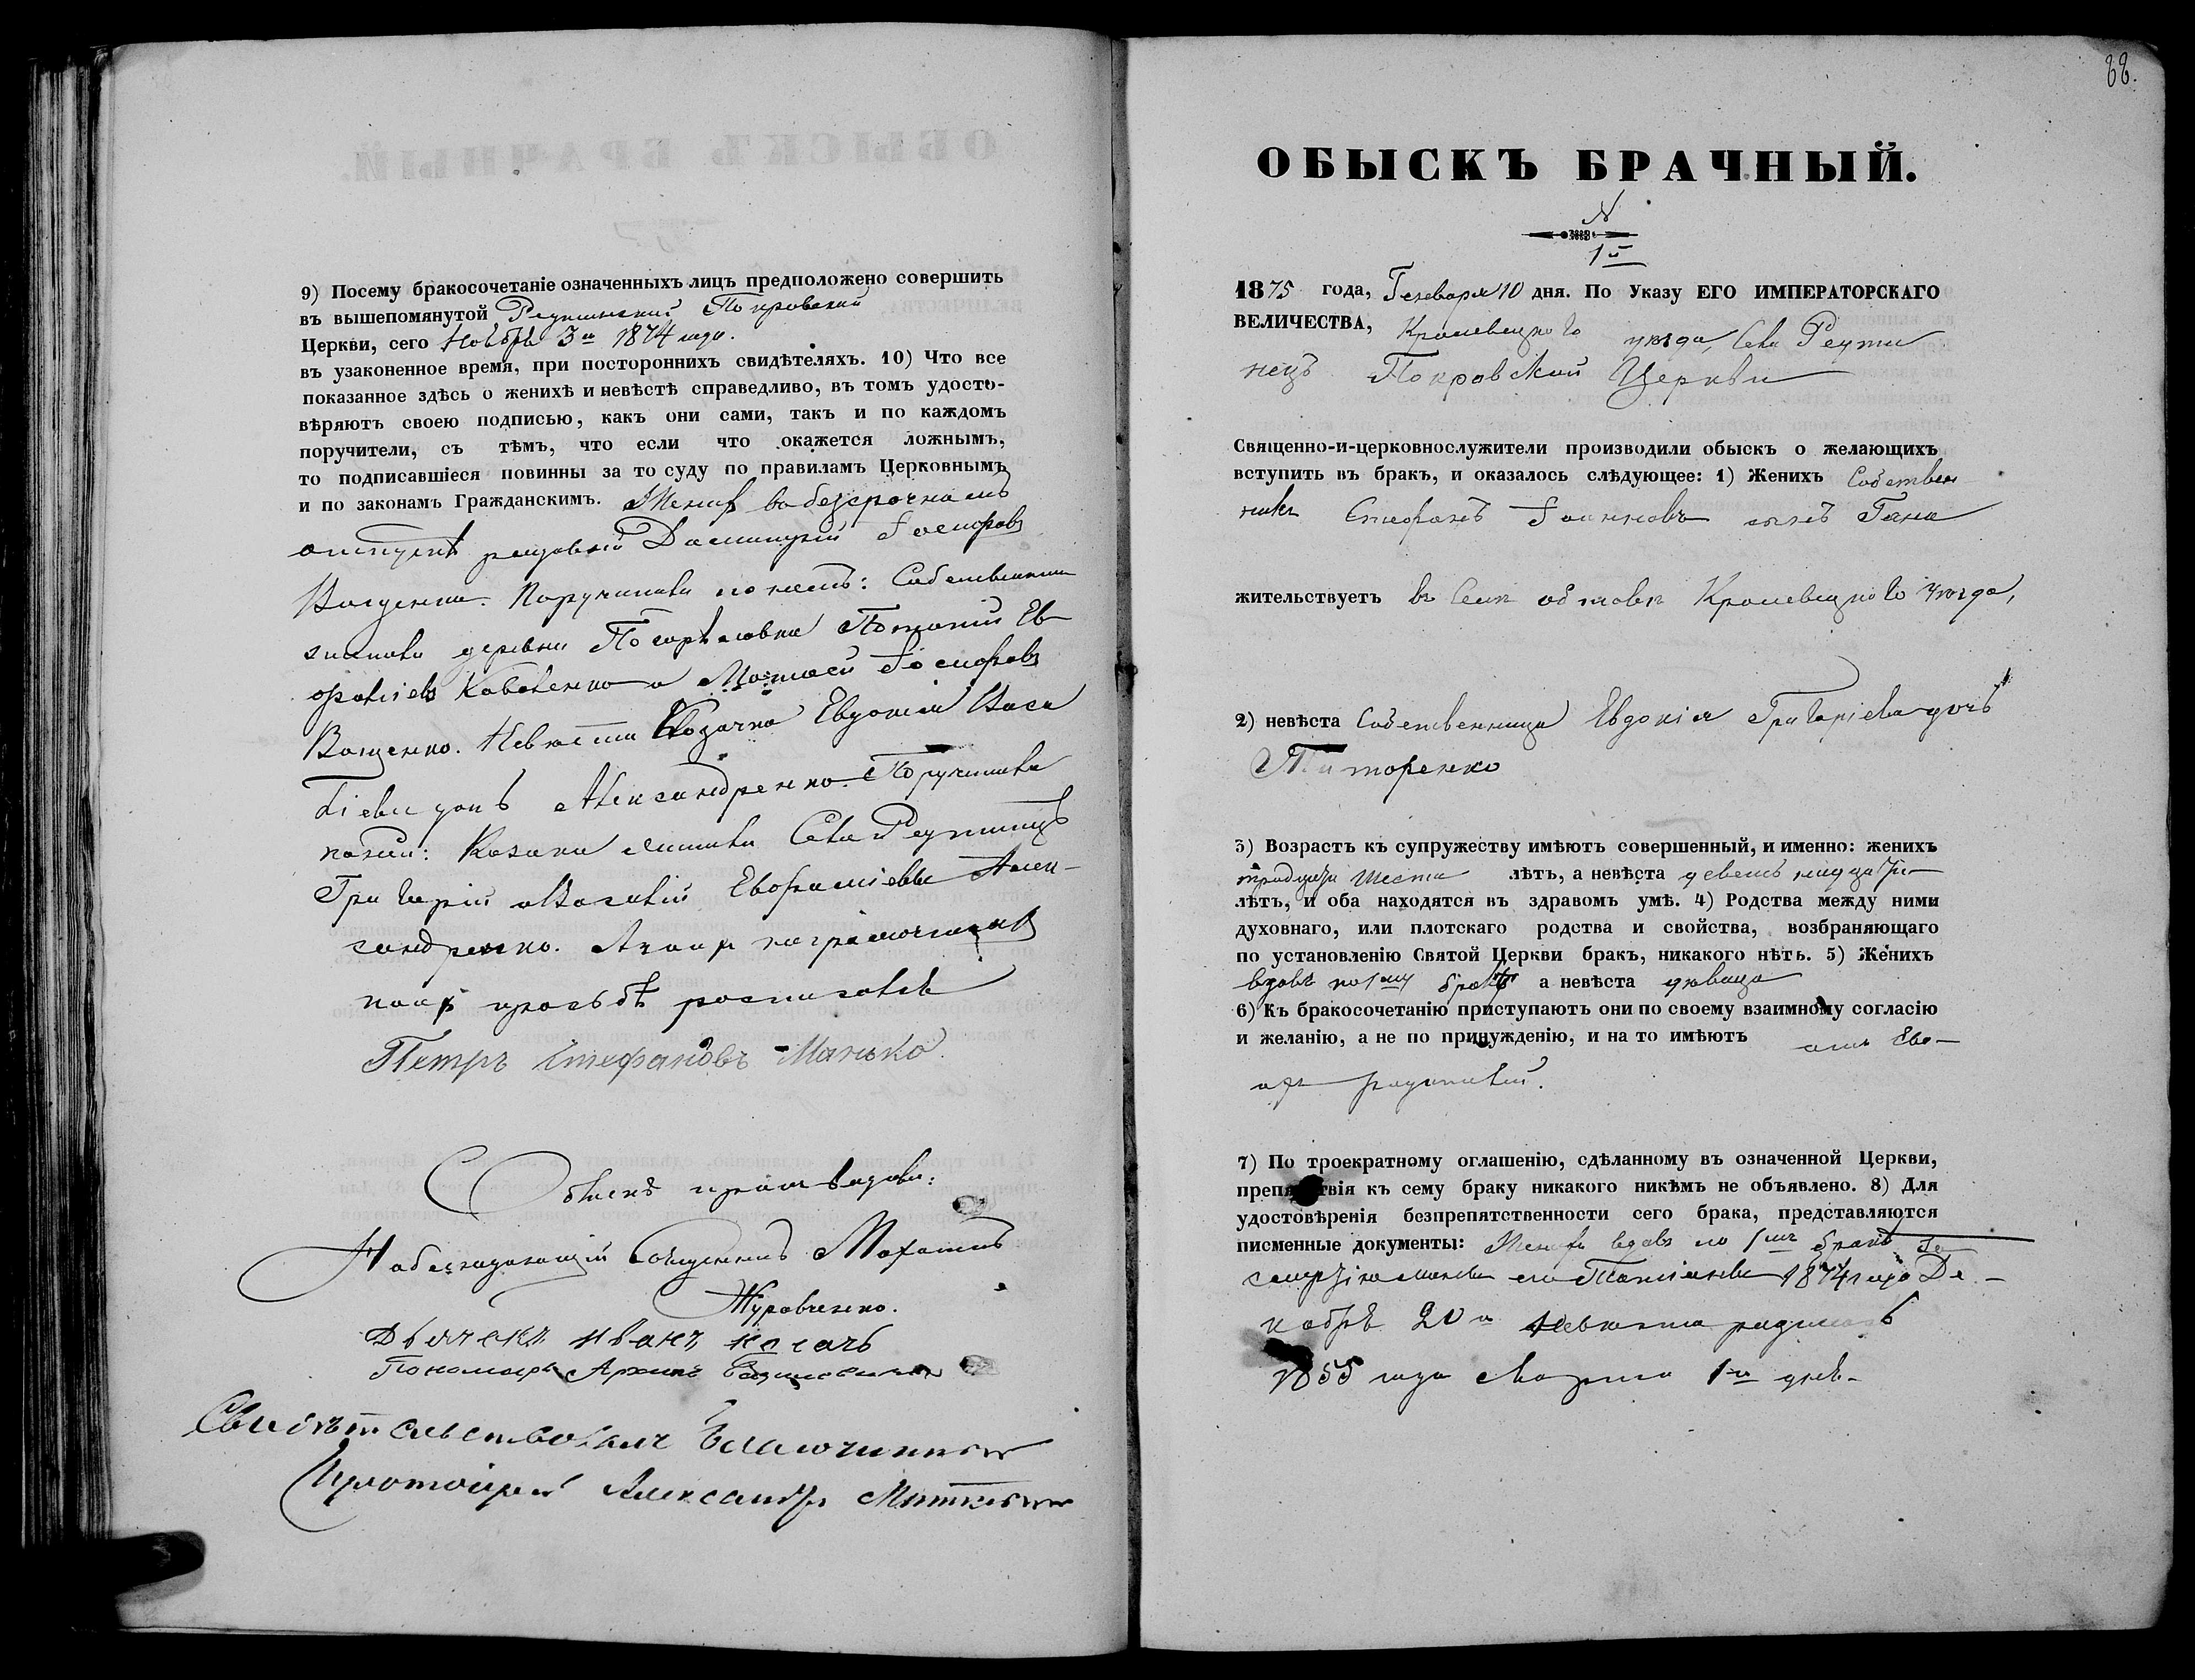 9) Посему бракосочетаніе означенныхъ лицъ предположено совершить
въ вышепомянутой Реутинской Покровской
Церкви, сего Ноября 3го 1874 года.
въ узаконенное время, при постороннихъ свидѣтеляхъ. 10) Что все
показанное здѣсь о женихѣ и невѣстѣ справедливо, въ томъ удосто-
вѣряютъ своею подписью, какъ они сами, такъ и по каждомъ
поручители, съ тѣмъ, что если что окажется ложнымъ,
то подписавшіеся повинны за то суду по правиламъ Церковнымъ
и по законамъ Гражданскимъ. Женихъ въ безсрочномъ
отпускѣ рядовой Димитрій Іосифовъ
Ващенко. Поручители по немъ: Собственники
жители деревни Погорѣловки Потапій Ев-
фиміевъ Коваленко и Матвей Іосифовъ
Ващенко. Невѣста Козачка Евдокія Васи
ліева дочь Александренко. Поручители
по ней: Козаки жители Села Реутинцъ
Григорій и Василій Евфиміевы Алек-
сандренко. А по ихъ неграмотности
по ихъ просьбѣ росписался
Петръ Стефановъ Манько.
Обыскъ производили:
Наблюдающій Священникъ
Журавченко.
Дьячекъ Иванъ
Пономарь Архипъ
Свидѣтельствовалъ Благочинный
Протоіерей Александръ
88.
ОБЫСКЪ БРАЧНЫЙ.
N
1й
1875 года, Генваря 10 дня. По Указу ЕГО ИМПЕРАТОРСКАГО
ВЕЛИЧЕСТВА, Кролевецкаго уѣзда, Села Реути
нецъ Покровской Церкви
Священно-и-церковнослужители производили обыскъ о желающихъ
вступить въ бракъ, и оказалось слѣдующее: 1) Женихъ Собствен
никъ Стефанъ Іоанновъ сынъ
жительствуетъ въ Селѣ Кролевецкаго Уѣзда,
2) невѣста Собственница Евдокія Григоріева дочь
Титоренко
3) Возрастъ къ супружеству имѣютъ совершенный, и именно: женихъ
тридцати шести лѣтъ, а невѣста девятнадцати
лѣтъ, и оба находятся въ здравомъ умѣ. 4) Родства между ними
духовнаго, или плотскаго родства и свойства, возбраняющаго
по установленію Святой Церкви бракъ, никакого нѣтъ. 5) Женихъ
вдовъ по 1му браку а невѣста дѣвица
6) Къ бракосочетанію приступаютъ они по своему взаимному согласію
и желанію, а не по принужденію, и на то имѣютъ отъ сво-
ихъ родителей.
7) По троекратному оглашенію, сдѣланному въ означенной Церкви,
препятствія къ сему браку никакого никѣмъ не объявлено. 8) Для
удостовѣренія безпрепятственности сего брака, представляются
писменные документы: Женихъ вдовъ по 1мъ бракѣ за
смертію жены его Татіаны 1874 года Де-
кабря 20го Невѣста родилась
1855 года Марта 1го дня.